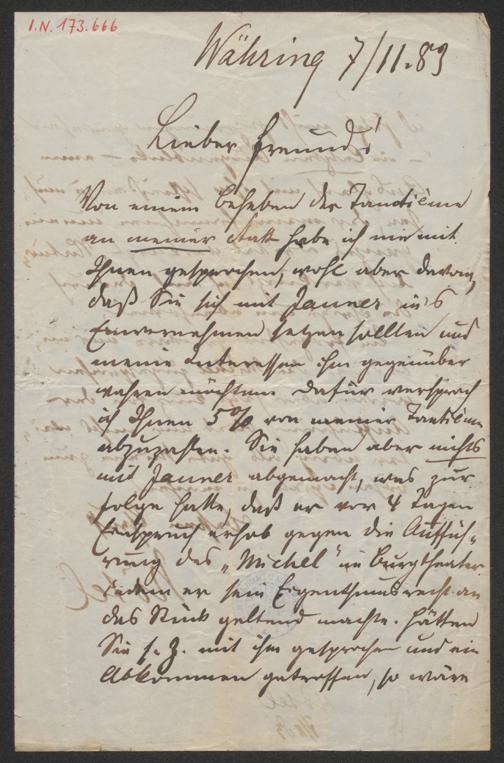 I.N. 173.666
Währing 7/11.83
Lieber Freund!
Von einem Beheben der Tantième
an meiner statt habe ich nie mit
Ihnen gesprochen, wohl aber davon,
daß Sie sich mit Jauner in's
Einvernehmen setzen sollten und
meine Interessen ihm gegenüber
wahren möchten. Dafür versprach
ich Ihnen 5% von meiner Tantième
abzuzahlen. Sie haben aber nichts
mit Jauner abgemacht, was zur
Folge hatte, daß er vor 4 Tagen
Einspruch erhob gegen die Auffüh-
rung des „Michel" im Burgtheater
indem er sein Eigenthumsrecht an
das Stück geltend machte. Hätten
Sie s. Z. mit ihm gesprochen und ein
Abkommen getroffen, so wäre